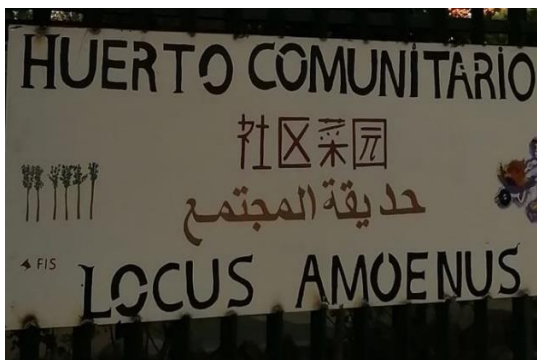 HUERTO COMUNITARIO
社区菜园
حديقة المجتمع
FIS
LOCUS AMOENUS